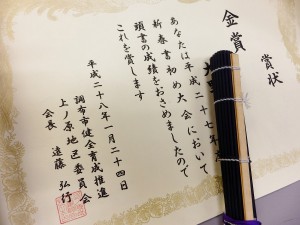 賞状
金賞
あなたは平成二十七年
新春書初め大会において
頭書の成績をおさめましたので
これを賞します
平成二十八年一月二十四日
調布市健全育成推進
上ノ原地区委員会
会長 遠藤 弘行